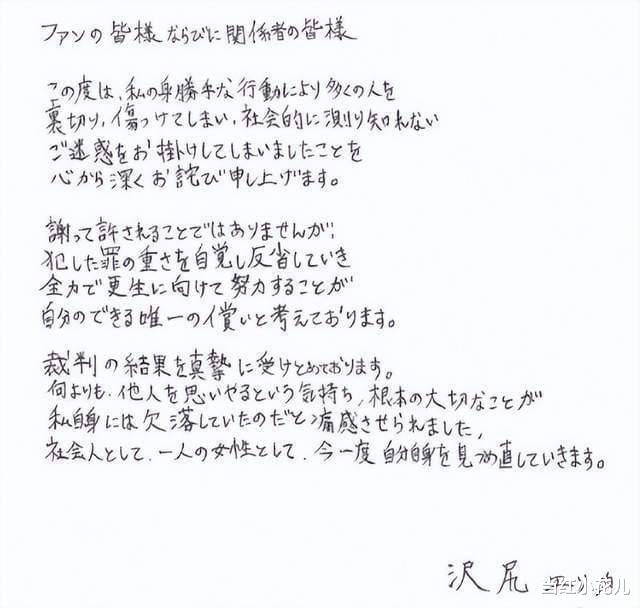 ファンの皆様ならびに関係者の皆様
この度は、私の身勝手な行動により多くの人を
裏切り、傷つけてしまい、社会的に測り知れない
ご迷惑をお掛けしてしまいましたことを
心から深くお詫び申し上げます。
謝って許されることではありませんが、
犯した罪の重さを自覚し反省していき
全力で更生に向けて努力することが
自分のできる唯一の償いと考えております。
裁判の結果を真摯に受けとめております。
何よりも、他人を思いやるという気持ち、根本の大切なことが
私自身には欠落していたのだと痛感させられました。
社会人として、一人の女性として、今一度自分自身を見つめ直していきます。
沢尻
当红小花儿